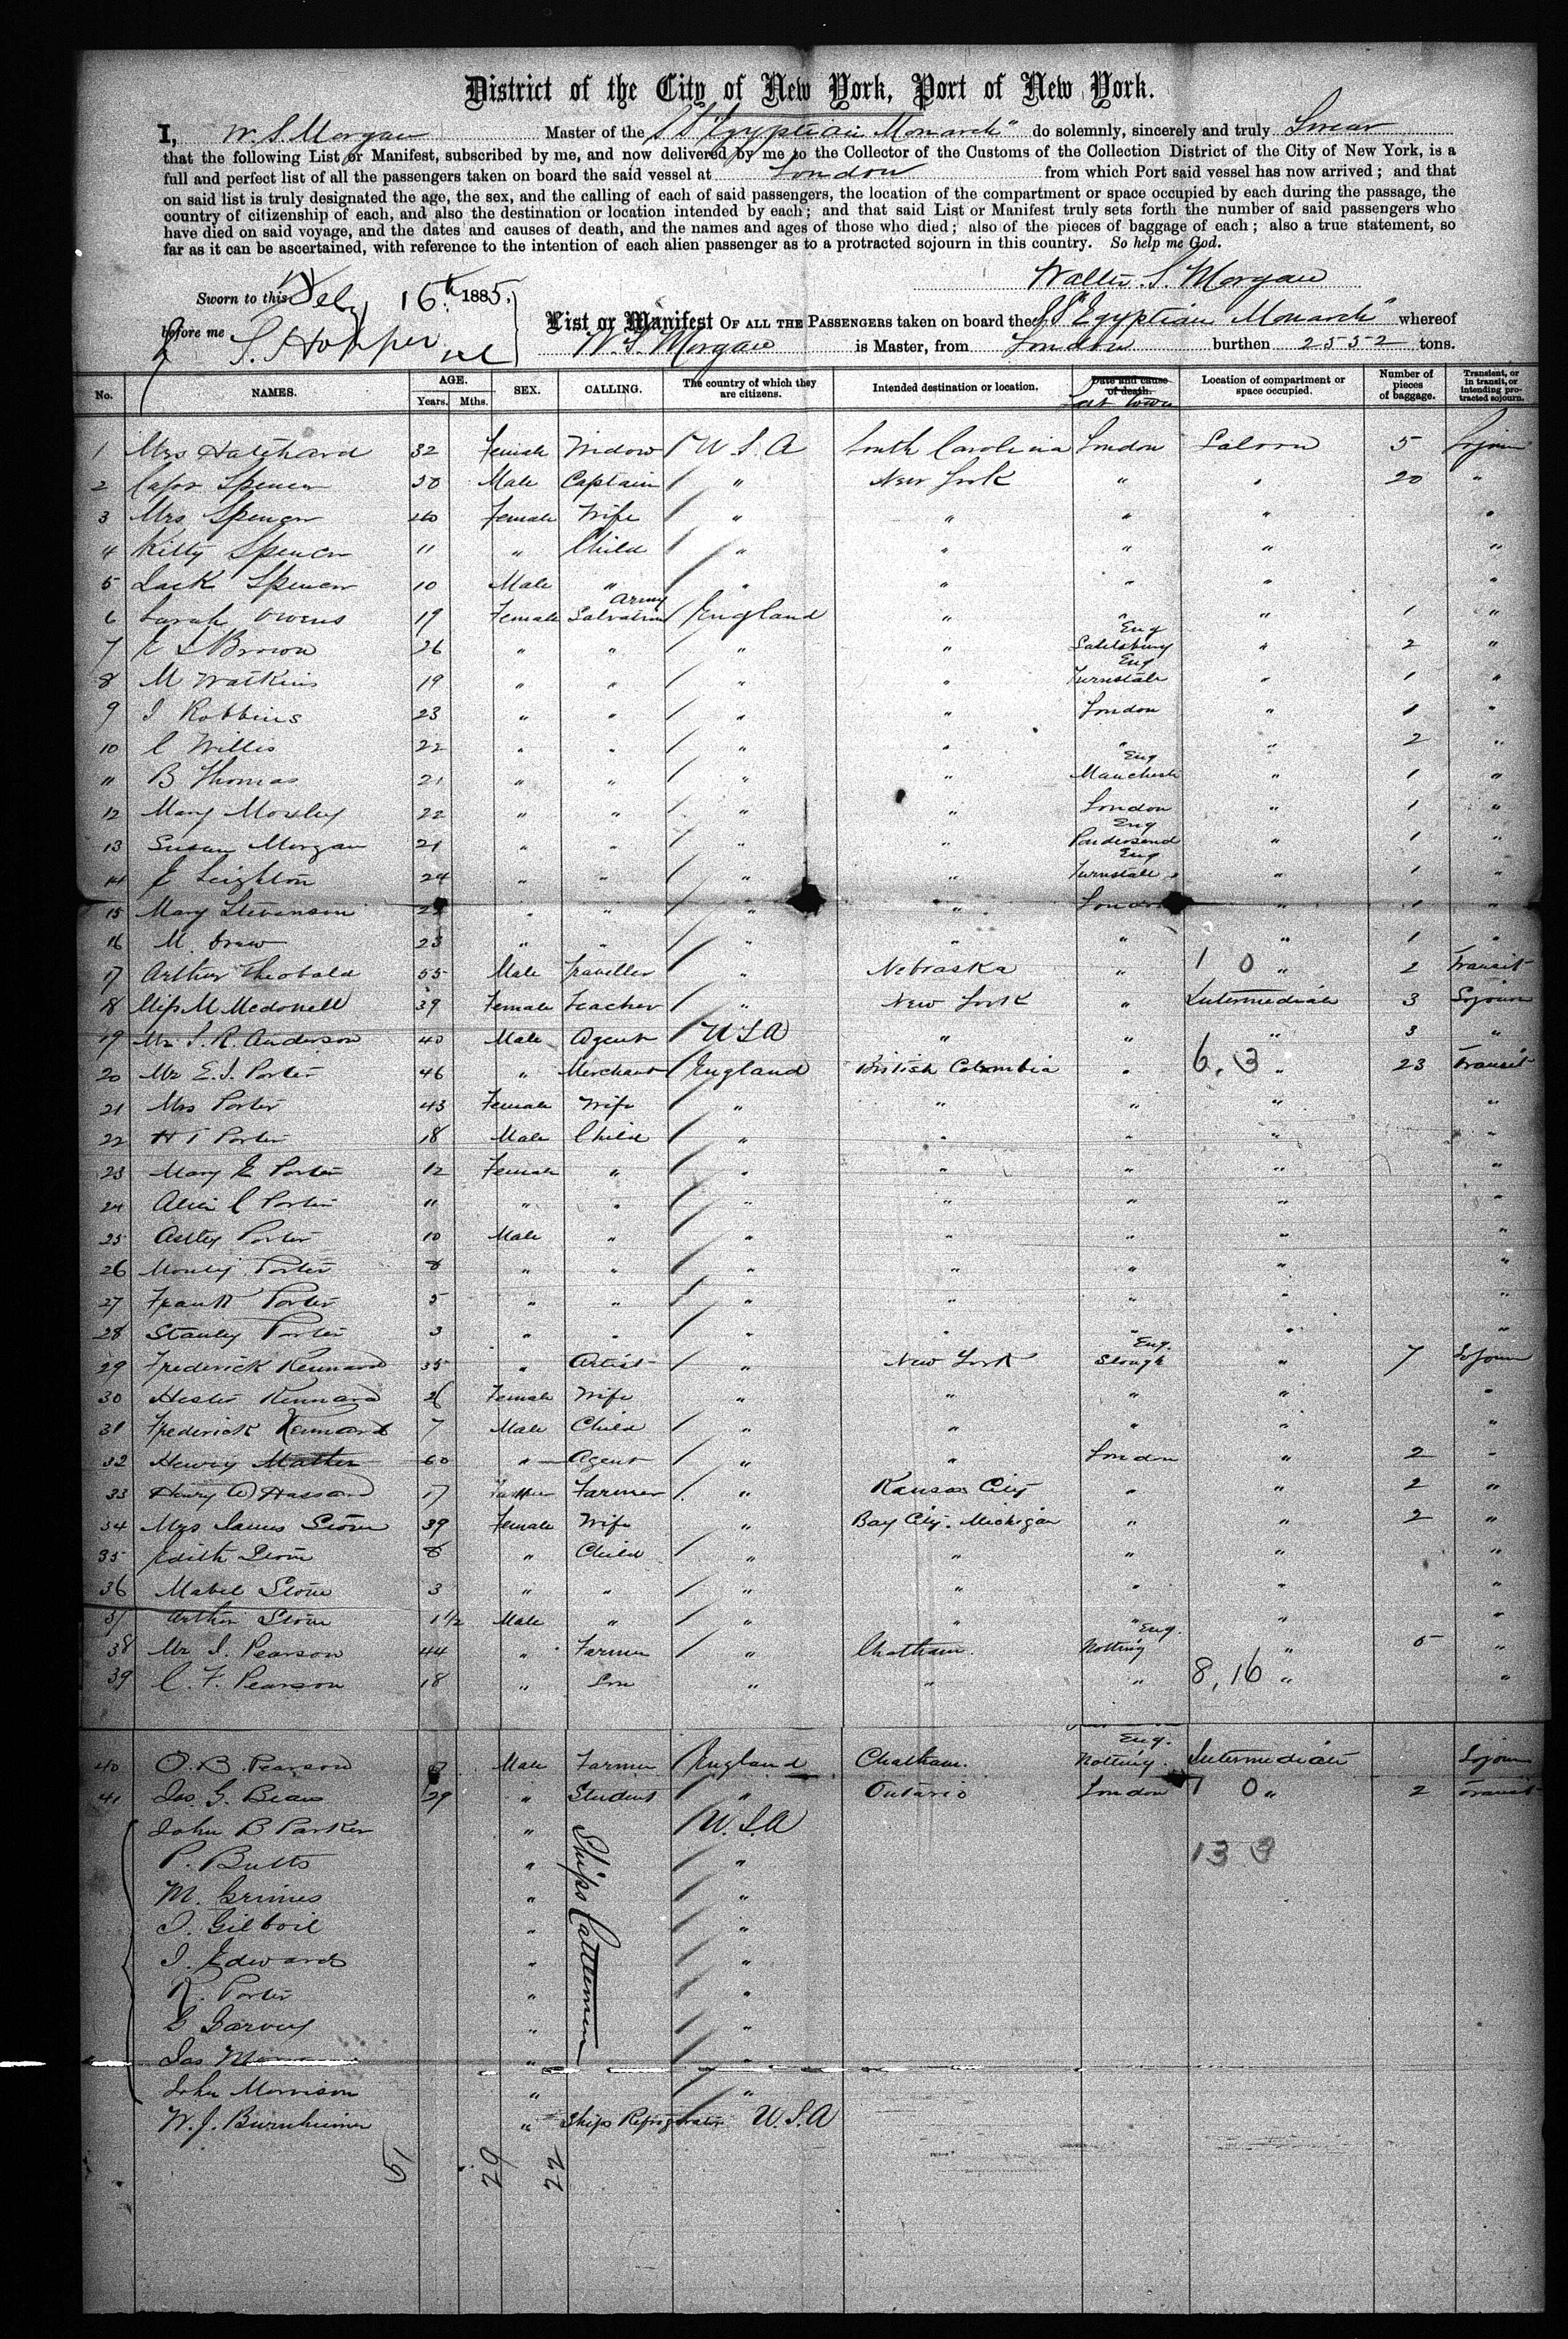 District of the City of New York, Port of New York.
I, W. S. Morgan Master of the SS "Egyptian Monarch" do solemnly, sincerely and truly Swear
that the following List or Manifest, subscribed by me, and now delivered by me to the Collector of the Customs of the Collection District of the City of New York, is a
full and perfect list of all the passengers taken on board the said vessel at London from which Port said vessel has now arrived; and that
on said list is truly designated the age, the sex, and the calling of each of said passengers, the location of the compartment or space occupied by each during the passage, the
country of citizenship of each, and also the destination or location intended by each; and that said List or Manifest truly sets forth the number of said passengers who
have died on said voyage, and the dates and causes of death, and the names and ages of those who died; also of the pieces of baggage of each; also a true statement, so
far as it can be ascertained, with reference to the intention of each alien passenger as to a protracted sojourn in this country. So help me God.
Walter. S. Morgan
Sworn to this 16th 1885,
before me S. Hopper
List or Manifest OF ALL THE PASSENGERS taken on board the SS "Egyptian Monarch" whereof
W. S. Morgan is Master, from London burthen 2552 tons.
No. NAMES. AGE. Years. Mths. SEX. CALLING. The country of which they are citizens. Intended destination or location. Date and cause of death. Last town Location of compartment or space occupied. Number of pieces of baggage. Transient, or in transit, or intending protracted sojourn.
1 Mrs Hatchard 32 Female Widow U S A South Carolina London Saloon 5 Sojourn
2 Spencer 50 Male Captain " New York " " 20 "
3 Mrs Spencer 40 Female Wife " " " " "
4 Kitty Spencer 11 " Child " " " " "
5 Jack Spencer 10 Male " " " " " "
6 Sarah Owens 19 Female Salvation Army England " " " 1 "
7 E L Brown 26 " " " " Salilsbury Eng " 2 "
8 M Watkins 19 " " " " Turnstale Eng " 1 "
9 J Robbins 23 " " " " London " 1 "
10 C Willis 22 " " " " " " 2 "
11 B Thomas 21 " " " " Manchest Eng " 1 "
12 Mary Moxley 22 " " " " London " 1 "
13 Susan Morgan 21 " " " " Pondersend Eng " 1 "
14 E Leighton 24 " " " " Turnstale Eng " 1 "
15 Mary Stevenson " " " " London " 1 "
16 M. Draw 23 " " " " " " 1 "
17 Arthur Theobald 55 Male Traveller " Nebraska " 1 0 " 2 Transit
18 Miss M Mcdonell 39 Female Teacher " New York " Intermediate 3 Sojourn
19 Mr J. R. Anderson 40 Male Agent U S A " " " 3 "
20 Mr E. J. Porter 46 " Merchant England British Colombia " 6, 3 " 23 Transit
21 Mrs Porter 43 Female Wife " " " " "
22 H T Porter 18 Male Child " " " " "
23 Mary E Porter 12 Female " " " " " "
24 Alice C Porter 11 " " " " " " "
25 Astley Porter 10 Male " " " " " "
26 Porter 8 " " " " " " "
27 Frank Porter 5 " " " " " " "
28 Stanley Porter 3 " " " " " " "
29 Frederick Kennard 35 " Artist " New York Slough Eng. " 7 Sojourn
30 Hester Kennard 26 Female Wife " " " " "
31 Frederick Kennard 7 Male Child " " " " "
32 Henry Mather 60 " Agent " " London " 2 "
33 Henry W Hassard 17 Farmer " Kansas City " " 2 "
34 Mrs James Stone 39 Female Wife " Bay City. Michigan " " 2 "
35 Edith Stone 8 " Child " " " " "
36 Mabel Stone 3 " " " " " " "
37 Arthur Stone 1 1/2 Male " " " " " "
38 Mr J. Pearson 44 " Farmer " Chatham. Notting Eng. " 5 "
39 C. F. Pearson 18 " Son " " " 8, 16 " "
40 O. B. Pearson Male Farmer England Chatham. Notting. Eng. Intermediate Sojourn
41 Jas G. Bears 29 " Student " Ontario London 1 0 " 2 Transit
John B Parker " Ships Cattlemen U.S.A
13 3
P. Butts " "
M. Grimes " "
J. Gilboil " "
J. Edwards " "
R. Porter " "
G Garvey " "
Jas " "
John Morrison " "
W. J. Burnheimer " Ships Refrigerator U.S.A
51 29 22